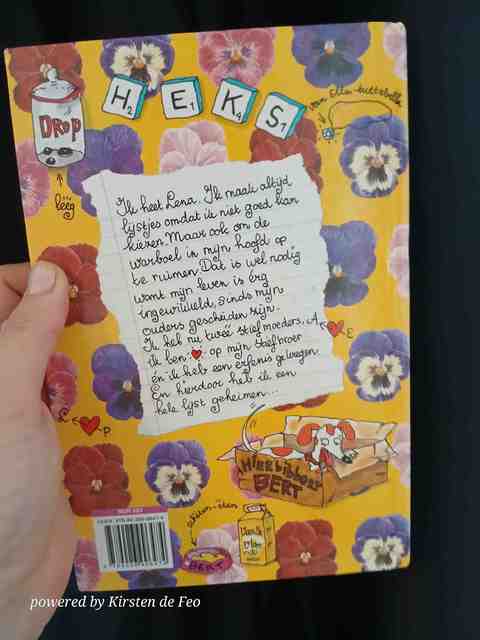 DROP
leeg
H2 E1 K4 S1
van Ella-
Ik heet Lena. Ik maak altijd
lijstjes omdat ik niet goed kan
kiezen. Maar ook om de
warboel in mijn hoofd op
te ruimen. Dat is wel nodig
want mijn leven is érg
ingewikkeld, sinds mijn
ouders gescheiden zijn.
Ik heb nu twéé stiefmoeders,
ik ben ♥ op mijn stiefbroer
én ik heb een erfenis gekregen.
En hierdoor heb ik een
hele lijst geheimen...
A ♥ E
L ♥ P
Hier bibbert
BERT
BERT
powered by Kirsten de Feo